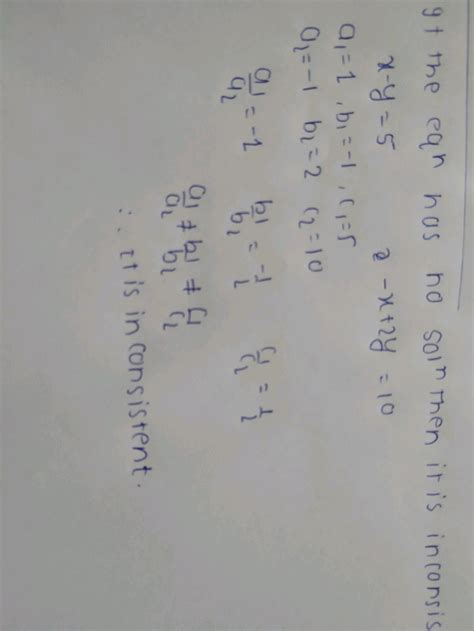 If the eqn has no solⁿ then it is inconsis
x-y=5 & -x+2y=10
a₁=1, b₁=-1, c₁=5
a₂=-1 b₂=2 c₂=10
a₁/a₂ = -1 b₁/b₂ = -1/2 c₁/c₂ = 1/2
a₁/a₂ ≠ b₁/b₂ ≠ c₁/c₂
∴ it is inconsistent.